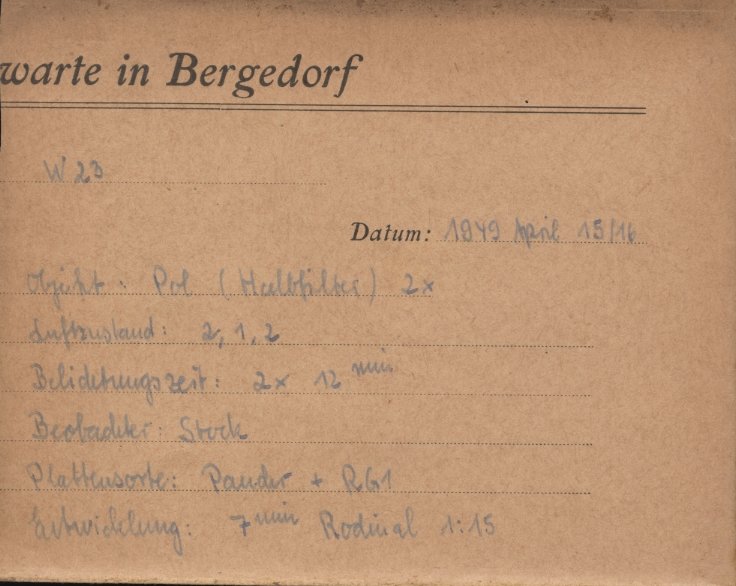 warte in Bergedorf
W 23
Datum: 1949 April 15/16
Objekt: Pol (Halbfilter) 2x
Luftzustand: 2, 1, 2
Belichtungszeit: 2x 12 min
Beobachter: Stock
Plattensorte: + RG1
Entwicklung: 7 min Rodinal 1:15